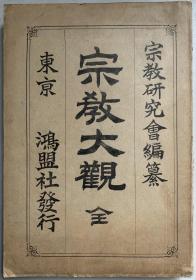 宗教研究會編纂
宗教大觀 全
東京 鴻盟社發行